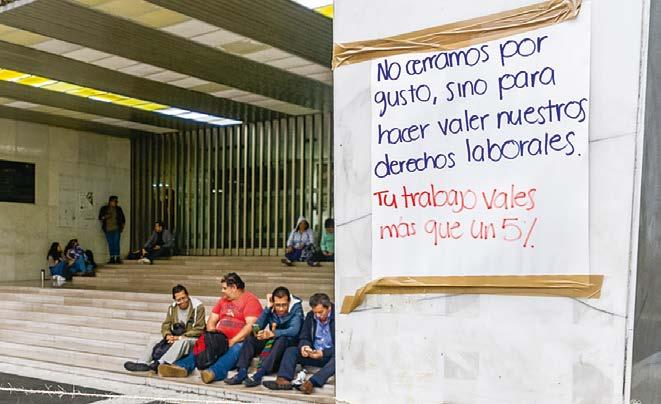 No cerramos por
gusto, sino para
hacer valer nuestros
derechos laborales.
Tu trabajo vales
más que un 5%